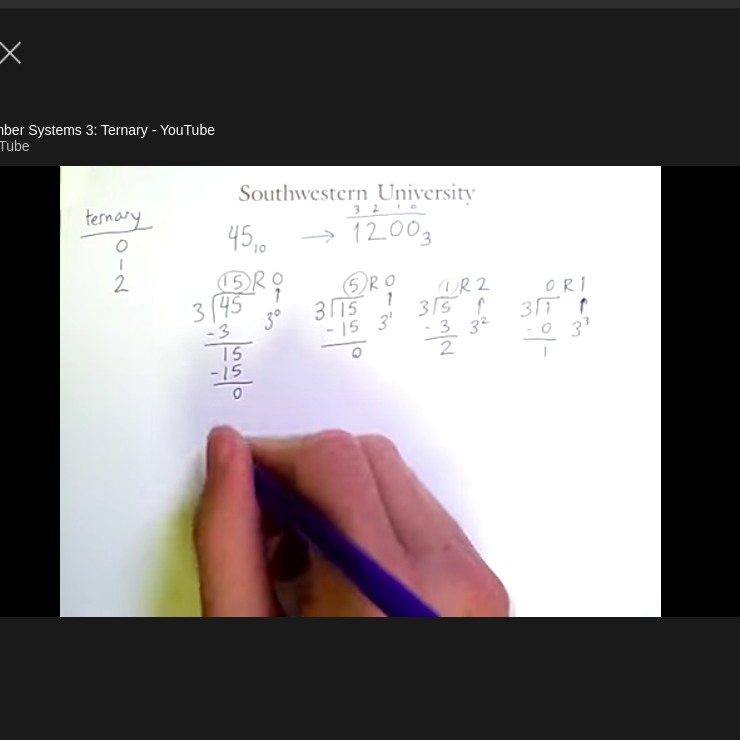 mber Systems 3: Ternary - YouTube
Tube
Southwestern University
ternary
0
1
2
3 2 1 0
45₁₀ → 1200₃
15 R 0
3 45 3⁰
-3
15
-15
0
5 R 0
3 15 3¹
-15
0
1 R 2
3 5
-3 3²
2
0 R 1
3 1
-0 3³
1